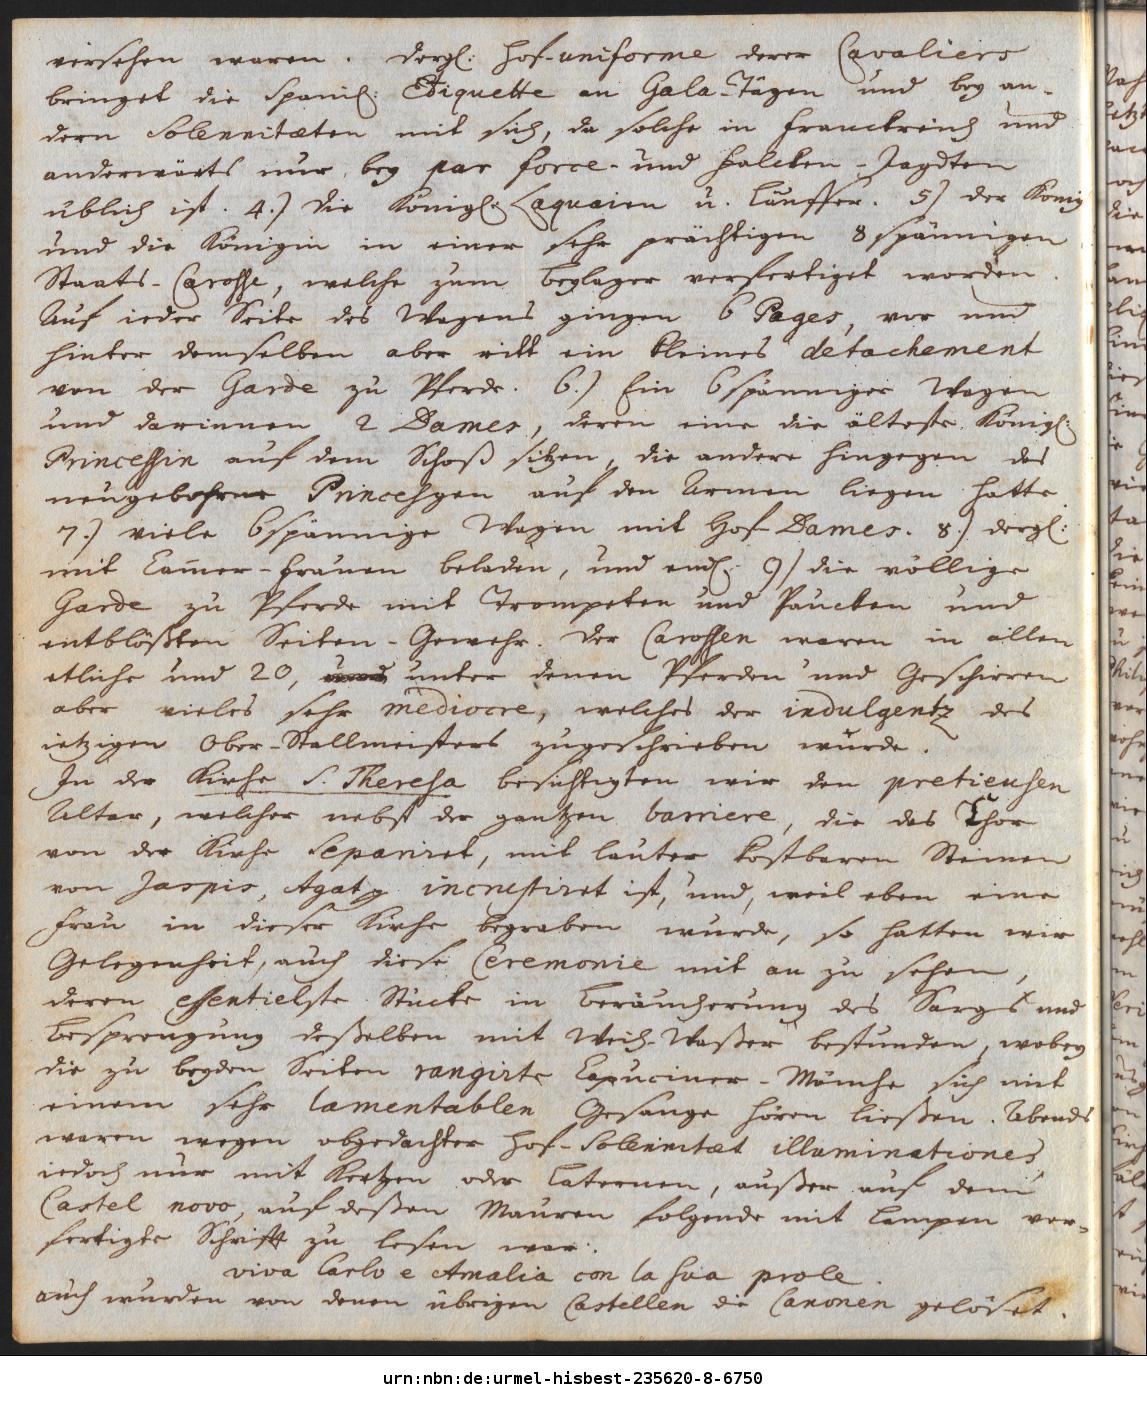 versehen waren. Dergl: Hof-uniforme derer Cavaliers
bringet die Spanis: Etiquette an Gala-Tägen und bey an-
dern Solennitæten mit sich, da solche in Franckreich und
anderwärts nur bey par force- und Falcken-Jagdten
üblich ist. 4.) Die Königl: Laquaien u. Läuffer. 5) der König
und die Königin in einer sehr prächtigen 8spännigen
Staats-Carosse, welche zum Beylager verfertiget worden.
Auf ieder Seite des Wagens gingen 6 Pages, vor und
hinter demselben aber ritt ein kleines detachement
von der Garde zu Pferde. 6.) Ein 6spänniger Wagen
und darinnen 2 Dames, deren eine die älteste Königl:
Princessin auf dem Schoß sitzen, die andere hingegen das
neugebohrne Princessgen auf den Armen liegen hatte.
7.) viele 6spännige Wagen mit Hof-Dames. 8.) dergl:
mit Cam̅er-Frauen beladen, und endl: 9) die völlige
Garde zu Pferde mit Trompeten und Paucken und
entblößten Seiten-Gewehr. Der Carossen waren in allen
etliche und 20, unter denen Pferden und Geschirren
aber vieles sehr mediocre, welches der indulgentz des
ietzigen Ober-Stallmeisters zugeschrieben wurde.
In der Kirche S. Theresa besichtigten wir den pretieusen
Altar, welcher nebst der gantzen barriere, die das Chor
von der Kirche separiret, mit lauter kostbaren Steinen
von Jaspis, Agat incrustiret ist, und, weil eben eine
Frau in dieser Kirche begraben wurde, so hatten wir
Gelegenheit, auch diese Ceremonie mit an zu sehen,
deren essentielste Stücke in Beräucherung des Sargs und
Besprengung deßelben mit Weih-Waßer bestunden, wobey
die zu beyden Seiten rangirte Capuciner-Mönche sich mit
einem sehr lamentablen Gesange hören ließen. Abends
waren wegen obgedachter Hof-Solennitæt illuminationes,
iedoch nur mit Kertzen oder Laternen, außer auf dem
Castel novo, auf deßen Mauren folgende mit Lampen ver-
fertigte Schrifft zu lesen war:
viva Carlo e Amalia con la sua prole.
auch wurden von denen übrigen Castellen die Canonen gelöset.
urn:nbn:de:urmel-hisbest-235620-8-6750